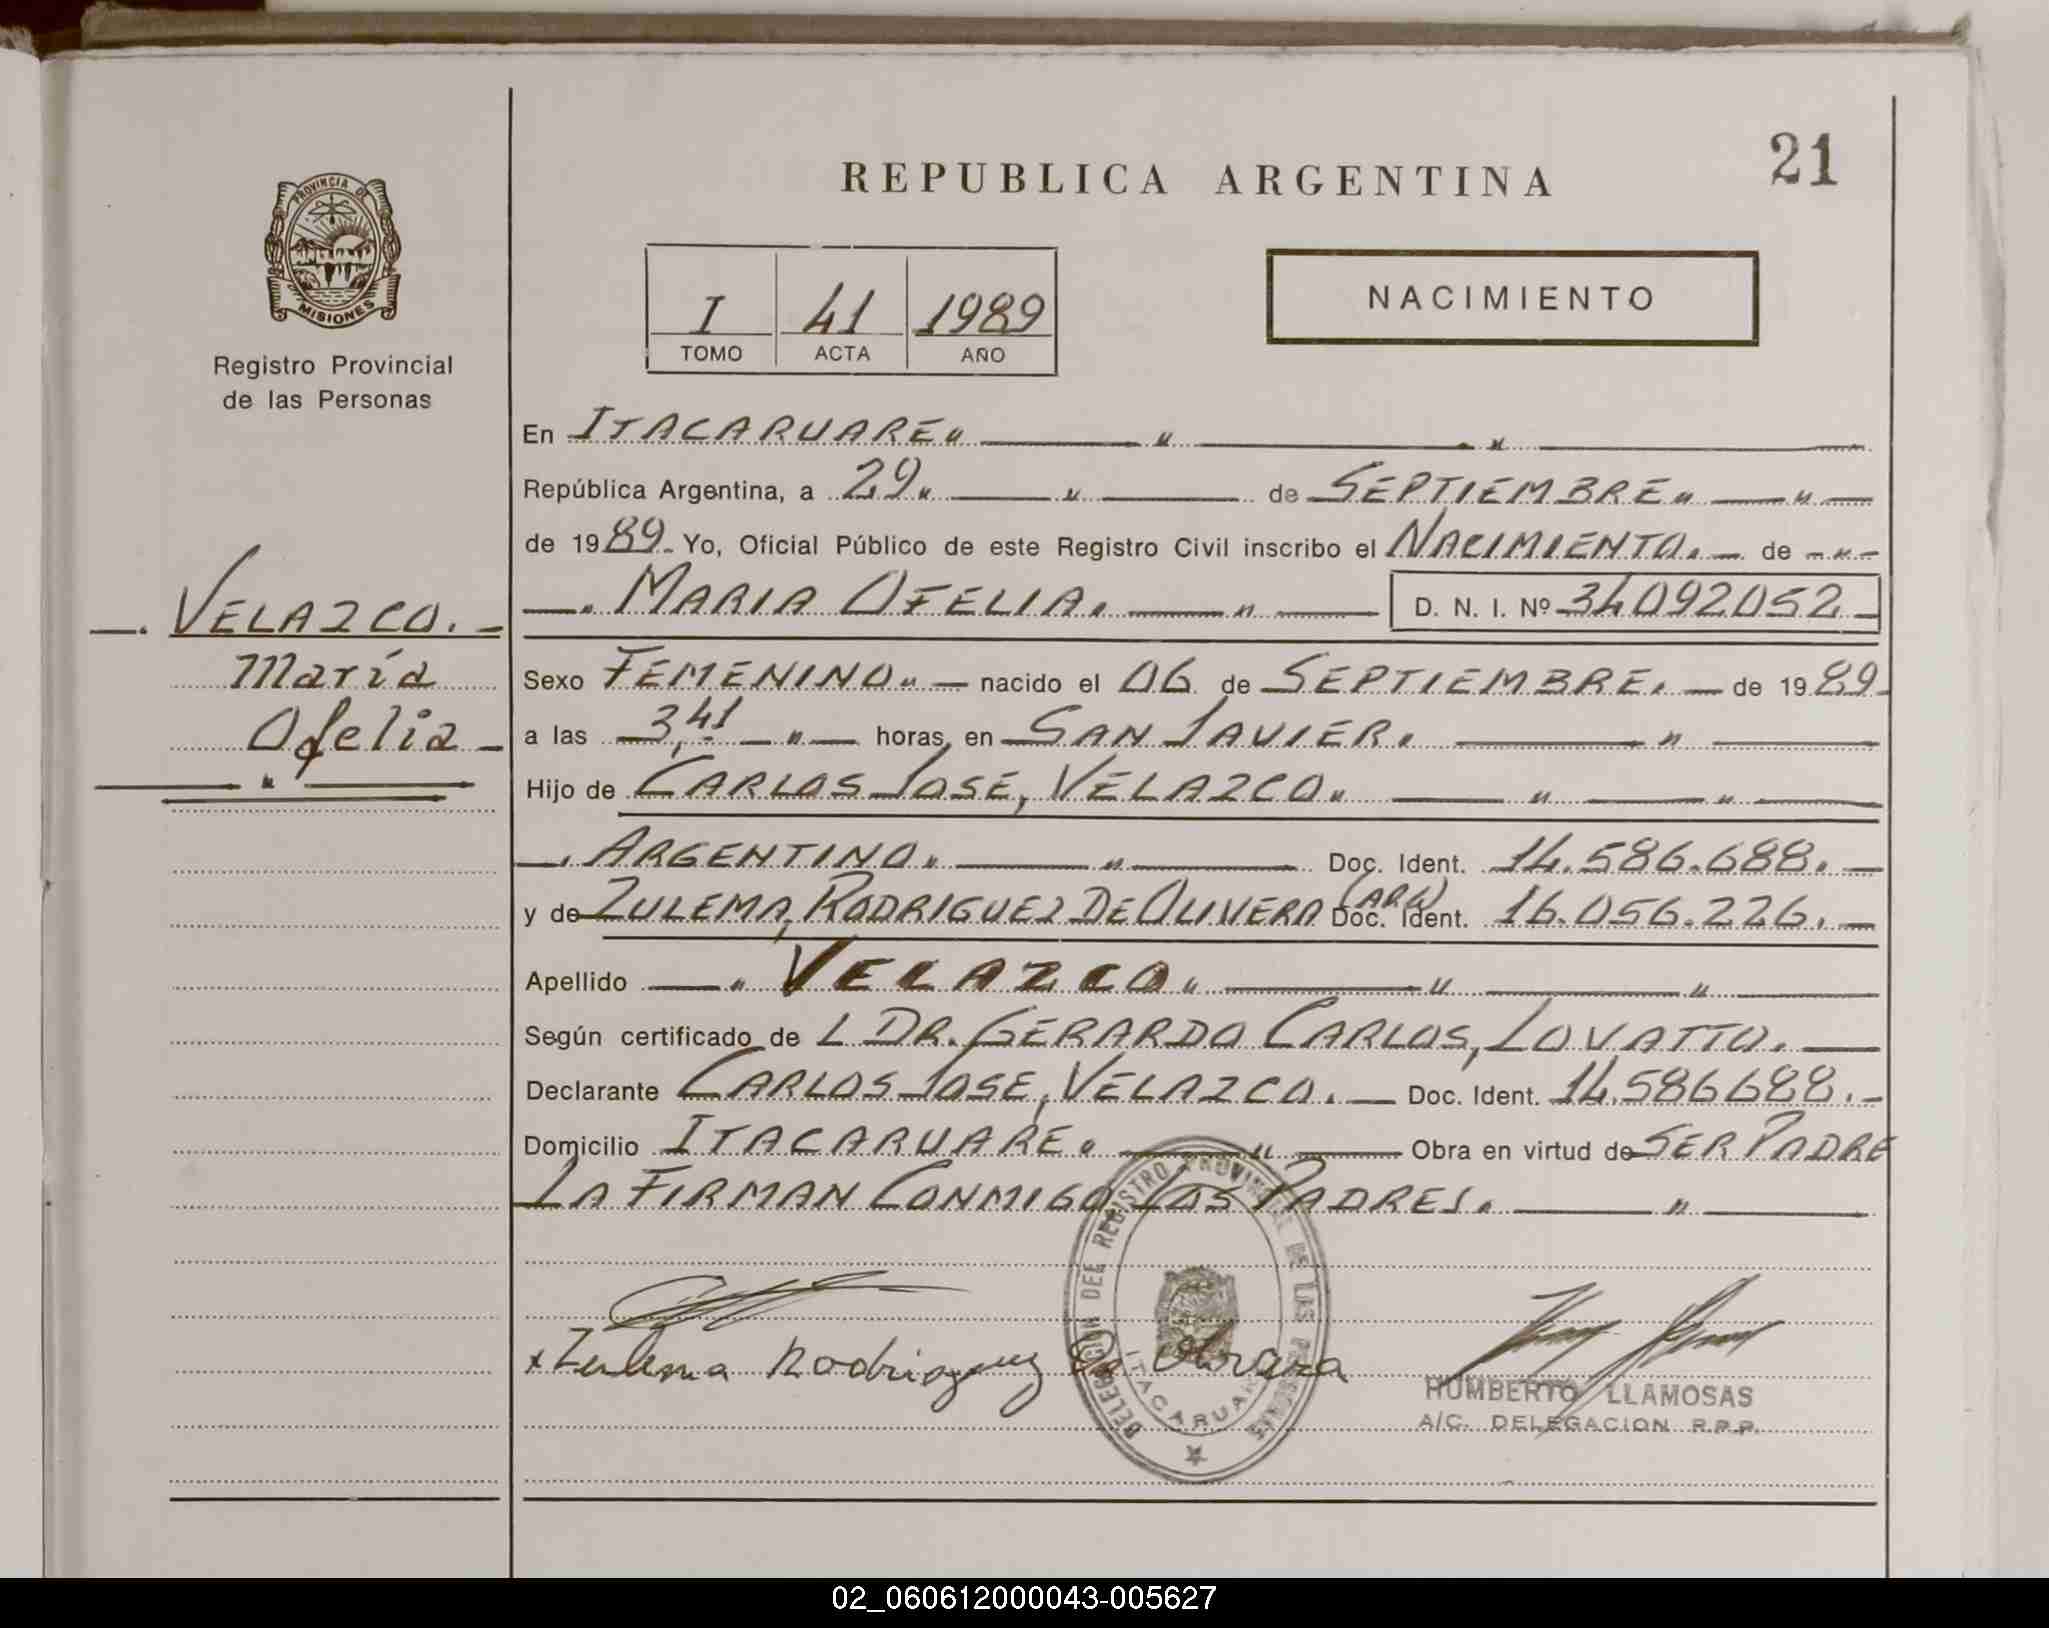 21
REPUBLICA ARGENTINA
PROVINCIA DE
MISIONES
Registro Provincial
de las Personas
I 41 1989
TOMO ACTA AÑO
NACIMIENTO
En ITACARUARE„ — „ — „ —
República Argentina, a 29„ — „ — de SEPTIEMBRE„ — „ —
de 1989.- Yo, Oficial Público de este Registro Civil inscribo el NACIMIENTO. — de - „ -
—. MARIA OFELIA. — „ — D. N. I. Nº 34092052 -
—. VELAZCO. -
María
Ofelia -
— „ —
Sexo FEMENINO„ — nacido el 06 de SEPTIEMBRE. — de 1989-
a las — 3,41 — „ — horas, en — SAN JAVIER. — „ —
Hijo de CARLOS JOSE, VELAZCO„ — „ — „ —
—. ARGENTINO„ — „ — Doc. Ident. 14.586.688. —
y de ZULEMA, RODRIGUEZ DE OLIVERA (ARG) Doc. Ident. 16.056.226. —
Apellido — „ VELAZCO„ — „ — „ —
Según certificado de L DR. GERARDO CARLOS, LOVATTO. —
Declarante CARLOS JOSE, VELAZCO. — Doc. Ident. 14.586688. -
Domicilio ITACARUARE„ — „ — Obra en virtud de SER PADRE
LA FIRMAN CONMIGO LOS PADRES. — „ —
DELEGACION DEL REGISTRO PROVINCIAL DE LAS PERSONAS
ITACARUARE
x Zulema Rodriguez De Olivera
HUMBERTO LLAMOSAS
A/C. DELEGACION R.P.P.
02_060612000043-005627